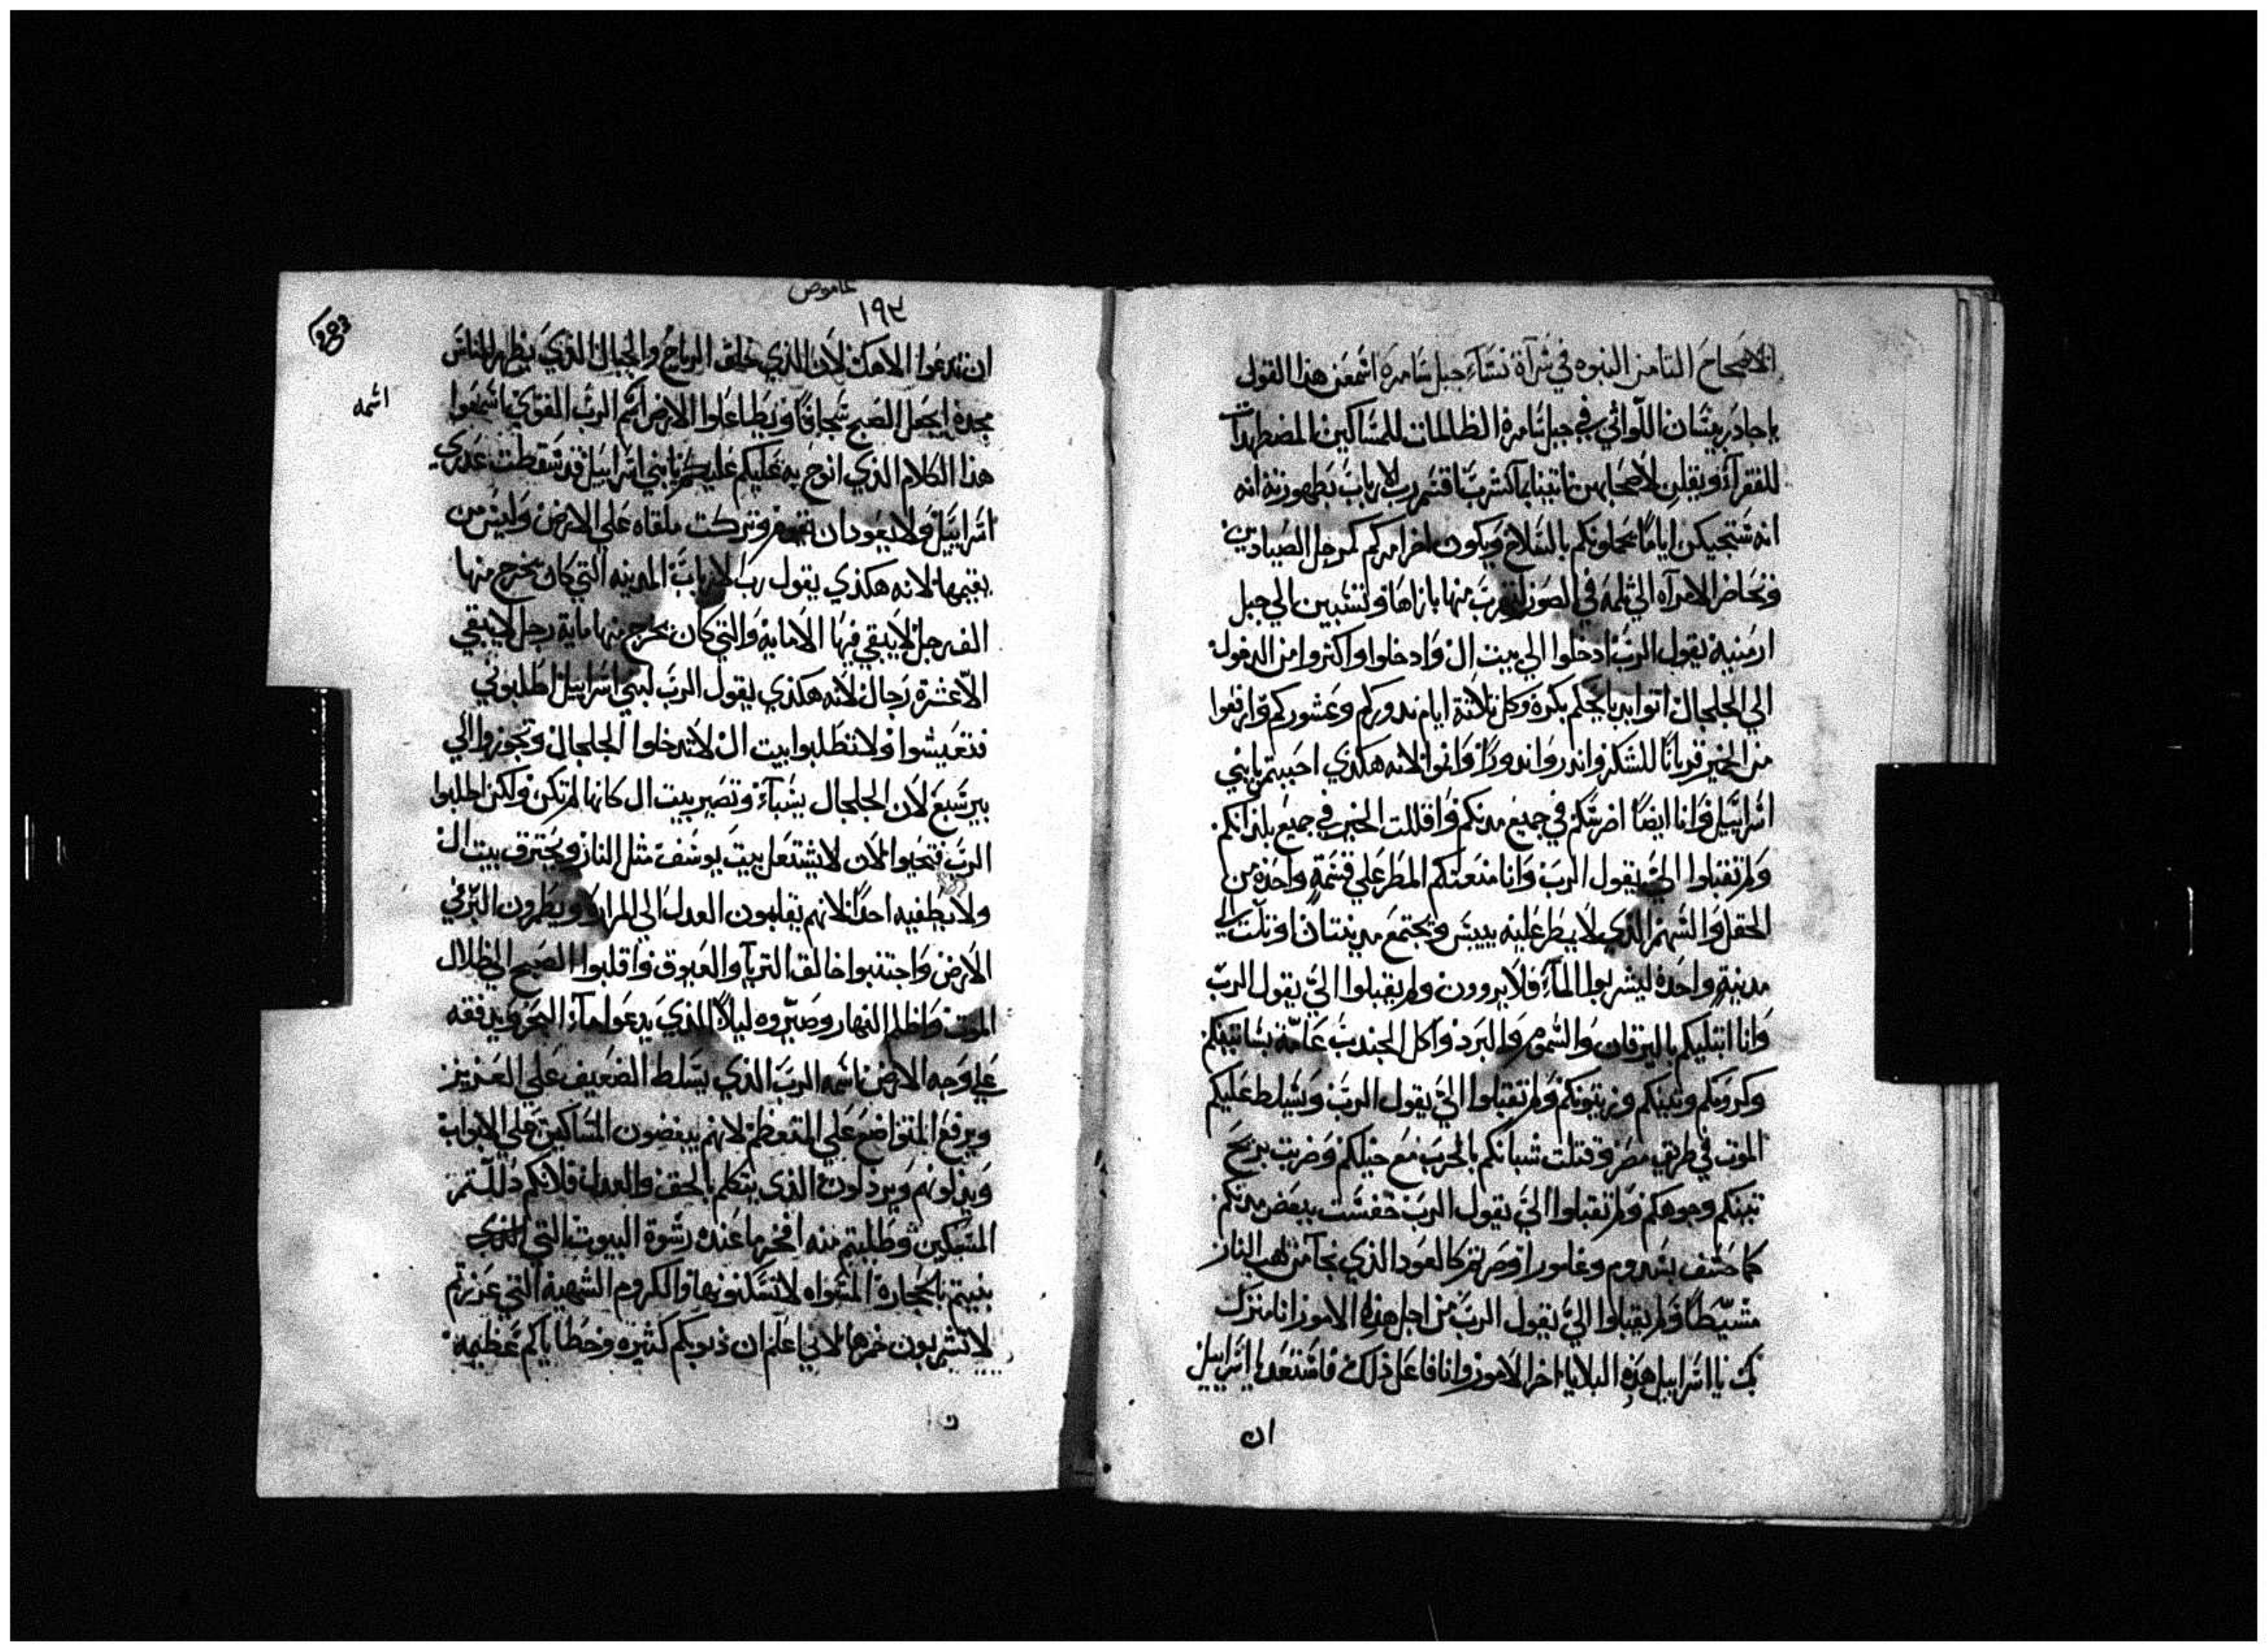 الاصحاح الثامن النبوه في شرآة نسآء جبل سامرة اسمعن هذا القول
يا جبادر بيسان اللواتي في جبل سامرة الظالمات للمساكين المضطهدات
للفقرآء ويقلن لاصحابهن قسم رب الارباب بطهورته انه
انه ستجيكن اياما يحملونكم بالسلاح ويكون اخر امركم كمرجل الصيادين
وتخاض الامرآه الي ثلمة في الصور منها بازاها وتنسبين الي جبل
ارمنيه يقول الرب ادخلوا الي بيت ال وادخلوا واكثروا من الدخول
الي الجلجال اتوا بدبايحكم بكرة وكل ثلاثة ايام ندوركم وعشوركم وارفعوا
من الخمير قربانا للشكر واندروا ندورا واتموا لانه هكذي احببتم يا بني
اسراييل وانا ايضا اضرستكم في جميع مدنكم واقللت الخبز في جميع بلدانكم
ولم تقبلوا الي يقول الرب وانا منعتكم المطر علي قسمة واحدة من
الحقل والسهم الذي لا يمطر عليه ييبس ويجتمع مدينتان او ثلث الي
مدينة واحدة ليشربوا المآء فلا يروون ولم يقبلوا الي يقول الرب
وانا ابتليكم باليرقان والسموم والبرد واكل الجندب عامة بساتينكم
وكرومكم وتينكم وزيتونكم ولم تقبلوا الي يقول الرب وسيلط عليكم
الموت في طريق مصر وقتلت شبانكم بالحرب مع خيلكم وضربت بريح
نتنكم وجوهكم ولم تقبلوا الي يقول الرب خفست ببعض مدنكم
كما خسف بسدوم وغامورا وصرتم كالعود الذي نجآ من لهب النار
مشيطا ولم يقبلوا الي يقول الرب من اجل هذه الامور انا منزل
بك يا اسراييل هذه البلايا اخر الامور وانا فاعل ذلك فاستعد يا اسراييل
ان
عاموص
١٩٤
ان تدعوا الاهك لان الذي خلق الرياح والجبال الذي يظهر للناس
مجده ايجعل الصبح سحابا ويطا علوا الارض اسم الرب القوي اسمعوا
اسمه
هذا الكلام الذي انوح به عليكم يا بني اسراييل قد سقطت عدري
اسراييل ولا يعود ان تقوم وتركت ملقاه علي الارض وليس من
يقيمها لانه هكذي يقول رب الارباب المدينه التي كان يخرج منها
الف رجل لا يبقي فيها الا مايه والتي كان يخرج منها ماية رجل لا يبقي
الا عشرة رجال لانه هكذي يقول الرب لبني اسراييل اطلبوني
فتعيشوا ولا تطلبوا بيت ال لا تدخلوا الجلجال وتجوزوا الي
بير سبع لان الجلجال يسبآء وتصير بيت ال كانها لم تكن ولكن اطلبوا
الرب فتحيوا لان لا يشتعل بيت يوسف مثل النار ويحترق بيت ال
ولا يطفيه احدا لانهم يقلبون العدل الي المرارة ويطرون البر في
الارض واجتنبوا خالق التريآ والعيوق واقلبوا الصبح الي ظلال
الموت واظلم النهار وصيروه ليلا الذي يدعوا مآء البحر ويدفقه
علي وجه الارض اسمه الرب الذي يسلط الضعيف علي العزيز
ويرفع المتواضع علي المتعظم لانهم يبغضون المساكين علي الابواب
ويدلونهم ويرذلون الذي يتكلم بالحق والعدل فلانكم دللتم
المسكين وطلبتم منه افخر ما عنده رشوة البيوت التي
بنيتم بالحجارة المسواه لا تسكنونها والكروم الشهية التي غرزتم
لا تشربون خمرها لاني اعلم ان ذنوبكم كثيرة وخطاياكم عظيمه